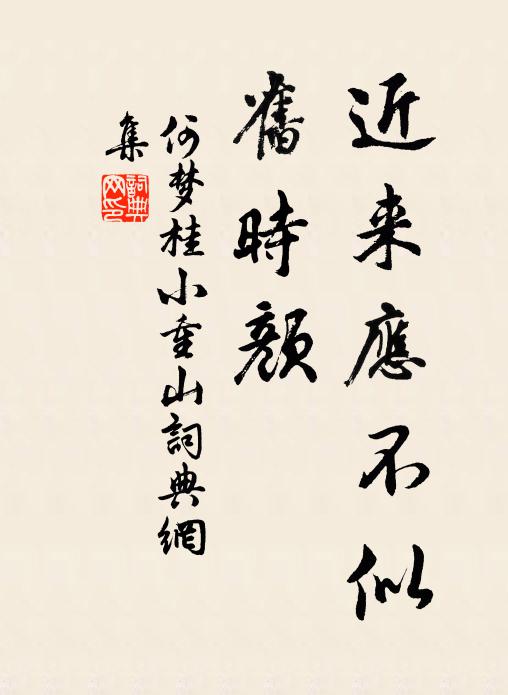 近来應不似
舊時顔
何梦桂小重山詞典網
集
詞典网印